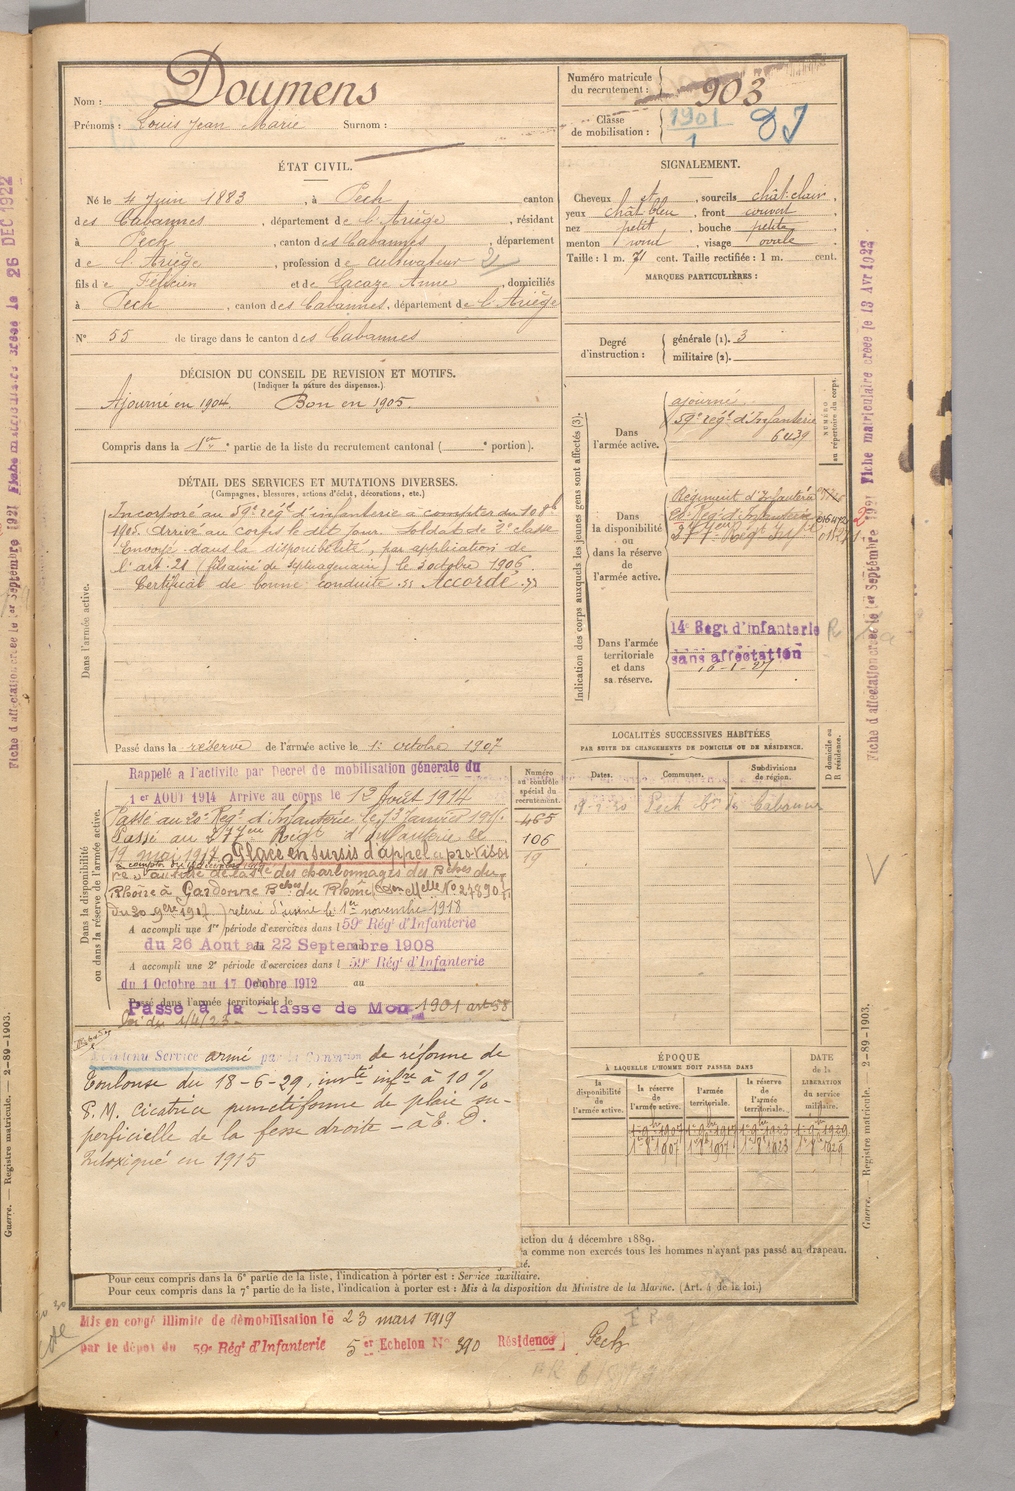 Nom : Doumens
Prénoms : Louis Jean Marie Surnom :
Numéro matricule du recrutement : 903
Classe de mobilisation : 1901
ÉTAT CIVIL.
Né le 4 Juin 1883, à Pech canton
des Cabannes, département de l'Ariège, résidant
à Pech, canton des Cabannes, département
de l'Ariège, profession de cultivateur
fils de Félicien et de Lacaze Anne, domiciliés
à Pech, canton des Cabannes, département de l'Ariège
N° 55 de tirage dans le canton des Cabannes
SIGNALEMENT.
Cheveux, sourcils chât. clair,
yeux chât bleu, front couvert
nez petit, bouche petite
menton rond, visage ovale
Taille : 1 m. 71 cent. Taille rectifiée : 1 m. cent.
MARQUES PARTICULIÈRES :
Degré d'instruction :
générale (1). 3
militaire (2).
DÉCISION DU CONSEIL DE REVISION ET MOTIFS.
(Indiquer la nature des dispenses.)
Ajourné en 1904. Bon en 1905.
Compris dans la 1re partie de la liste du recrutement cantonal ( portion).
DÉTAIL DES SERVICES ET MUTATIONS DIVERSES.
(Campagnes, blessures, actions d'éclat, décorations, etc.)
Dans l'armée active.
Incorporé au 59e régt d'infanterie à compter du 10 8bre
1905. arrivé au corps le dit jour. soldat de 2e classe
Envoyé dans la disponibilité, par application de
l'art. 21 (filiainé de septuagénaire) le 3 octobre 1906.
Certificat de bonne conduite « Accordé. »
Passé dans la réserve de l'armée active le 1er octobre 1907
Indication des corps auxquels les jeunes gens sont affectés (3).
NUMÉRO au répertoire du corps.
Dans l'armée active.
ajourné
59e régt d'Infanterie
6439
Dans la disponibilité ou dans la réserve de l'armée active.
Régiment d'Infanterie
Dans l'armée territoriale et dans sa réserve.
14e Regt d'infanterie
sans affectation
16-1-27
Dans la disponibilité ou dans la réserve de l'armée active.
Rappelé a l'activite par Decret de mobilisation générale du
1er AOUT 1914 Arrive au corps le 12 Août 1914
Passé au 20e Régt d'Infanterie le 13 Janvier 191
Passé au 277eme Regt d'Infanterie le
19 mai 1917. Placé en sursis d'appel et provisoi
re au titre de la Sté des charbonnages des Bches du
Rhône à Gardanne Bches du Rhône (Don Melle No 27890
du 20 9bre 1917) relevé d'usine le 1er novembre 1918
A accompli une 1re période d'exercices dans l 59e Régt d'Infanterie
du 26 Aout au 22 Septembre 1908
A accompli une 2e période d'exercices dans l 59e Régt d'Infanterie
du 1 Octobre au 17 Octobre 1912 au
Passé dans l'armée territoriale le
Passé à la Classe de Mon 1901 art 58
Loi du 1/4/23
Numéro au contrôle spécial du recrutement.
465
106
19
LOCALITÉS SUCCESSIVES HABITÉES
PAR SUITE DE CHANGEMENTS DE DOMICILE OU DE RÉSIDENCE.
Dates. Communes. Subdivisions de région. D domicile ou R résidence.
Pech Cabannes
Maintenu Service armé par la Commission de réforme de
Toulouse du 18-6-29, invté infre à 10 %
P. M. Cicatrice punctiforme de plaie su-
perficielle de la fesse droite - à E. D.
Intoxiqué en 1915
ÉPOQUE
À LAQUELLE L'HOMME DOIT PASSER DANS
la disponibilité de l'armée active. la réserve de l'armée active. l'armée territoriale. la réserve de l'armée territoriale.
DATE de la LIBÉRATION du service militaire.
1-8-1907 1-8-1917 1-8-1923 1-8-1929
ction du 4 décembre 1889.
comme non exercés tous les hommes n'ayant pas passé au drapeau.
Pour ceux compris dans la 6e partie de la liste, l'indication à porter est : Service auxiliaire.
Pour ceux compris dans la 7e partie de la liste, l'indication à porter est : Mis à la disposition du Ministre de la Marine. (Art. 4 de la loi.)
Mis en congé illimité de démobilisation le 23 mars 1919
par le dépot du 59e Régt d'Infanterie 5er Echelon N° 390 Résidence Pech
Fiche d'affectation créée le 1er Septembre 1921 Fiche matriculaire créée le 26 DEC 1922
Guerre. — Registre matricule. — 2-89-1903.
Fiche d'affectation créée le 1er Septembre 1921 Fiche matriculaire créée le 13 Avr 1923
Guerre. — Registre matricule. — 2-89-1903.